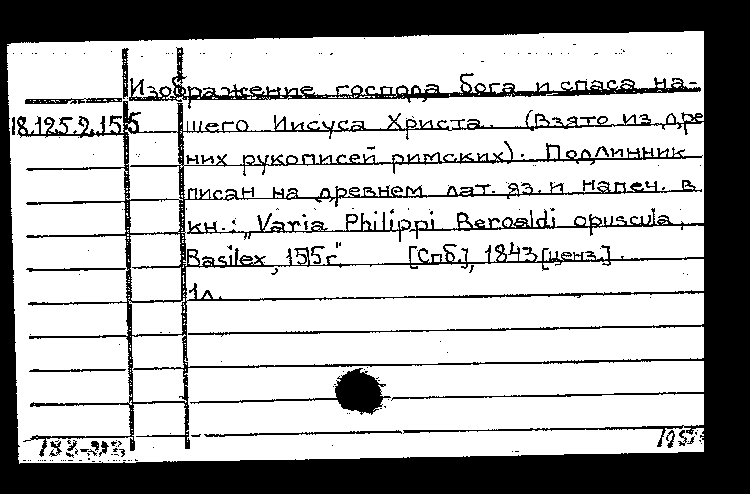 Изображение господа бога и спаса на-
18.125.2.155 шего Иисуса Христа. (Взято из дре
них рукописей римских). Подлинник
писан на древнем лат. яз. и напеч. в
кн.: „Varia Philippi Beroaldi opuscula,
Basilex, 1515г." [Спб.], 1843 [ценз.].
1л.